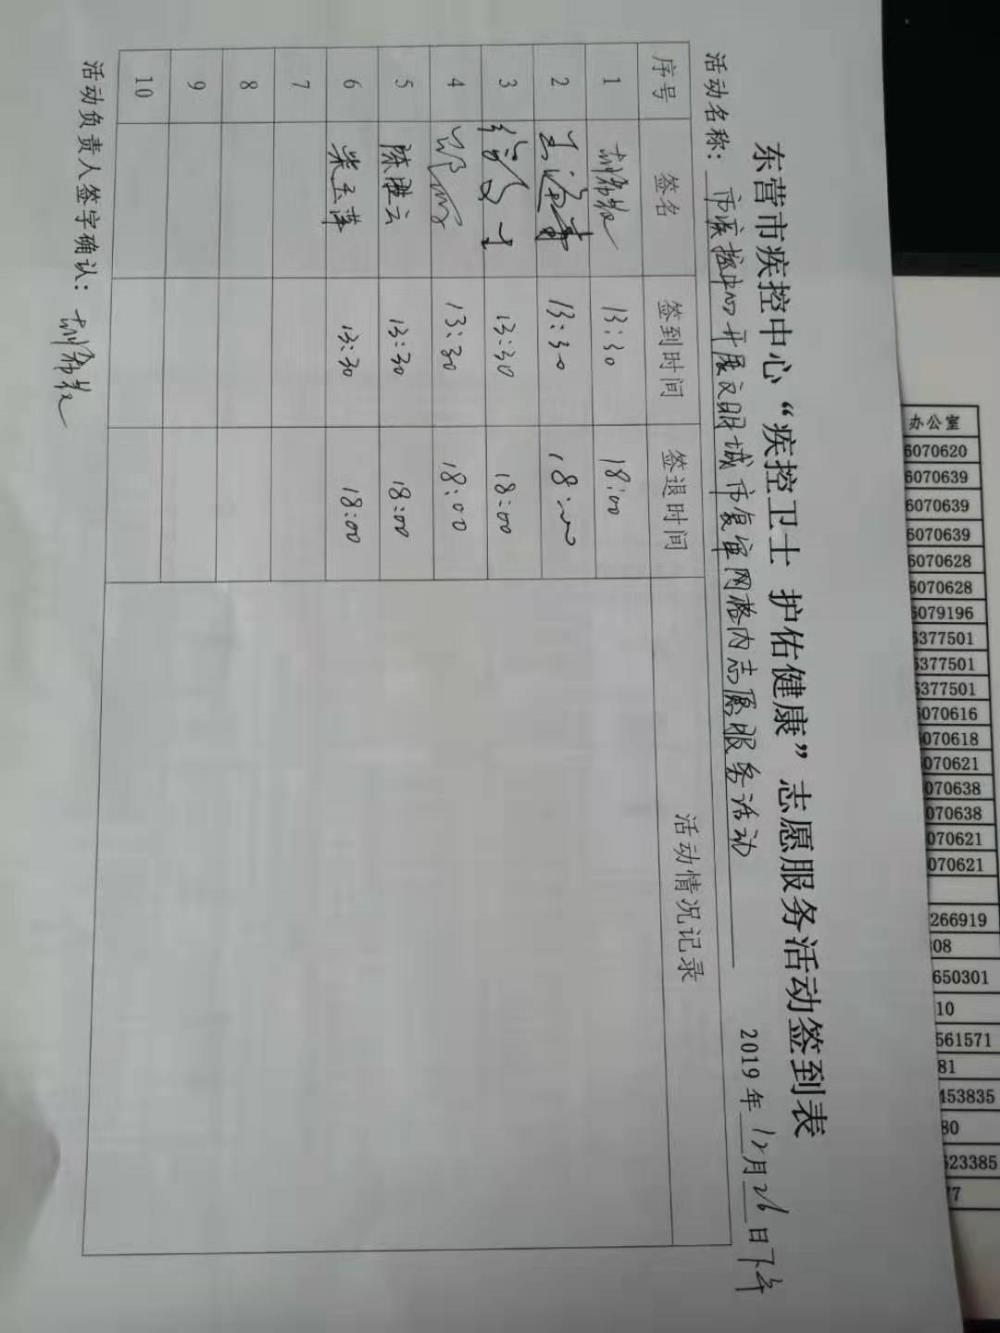 东营市疾控中心“疾控卫士 护佑健康”志愿服务活动签到表
活动名称：市疾控中心开展文明城市复审网格内志愿服务活动 2019年12月26日下午
序号 签名 签到时间 签退时间 活动情况记录
1 13:30 18:00
2 13:30 18:00
3 13:30 18:00
4 13:30 18:00
5 陈胜云 13:30 18:00
6 柴玉萍 13:30 18:00
7
8
9
10
活动负责人签字确认：
办公室
6070620
6070639
6070639
6070639
6070628
6070628
6079196
5377501
5377501
5377501
6070616
6070618
6070621
070638
070638
070621
070621
266919
08
650301
10
561571
81
453835
80
623385
77